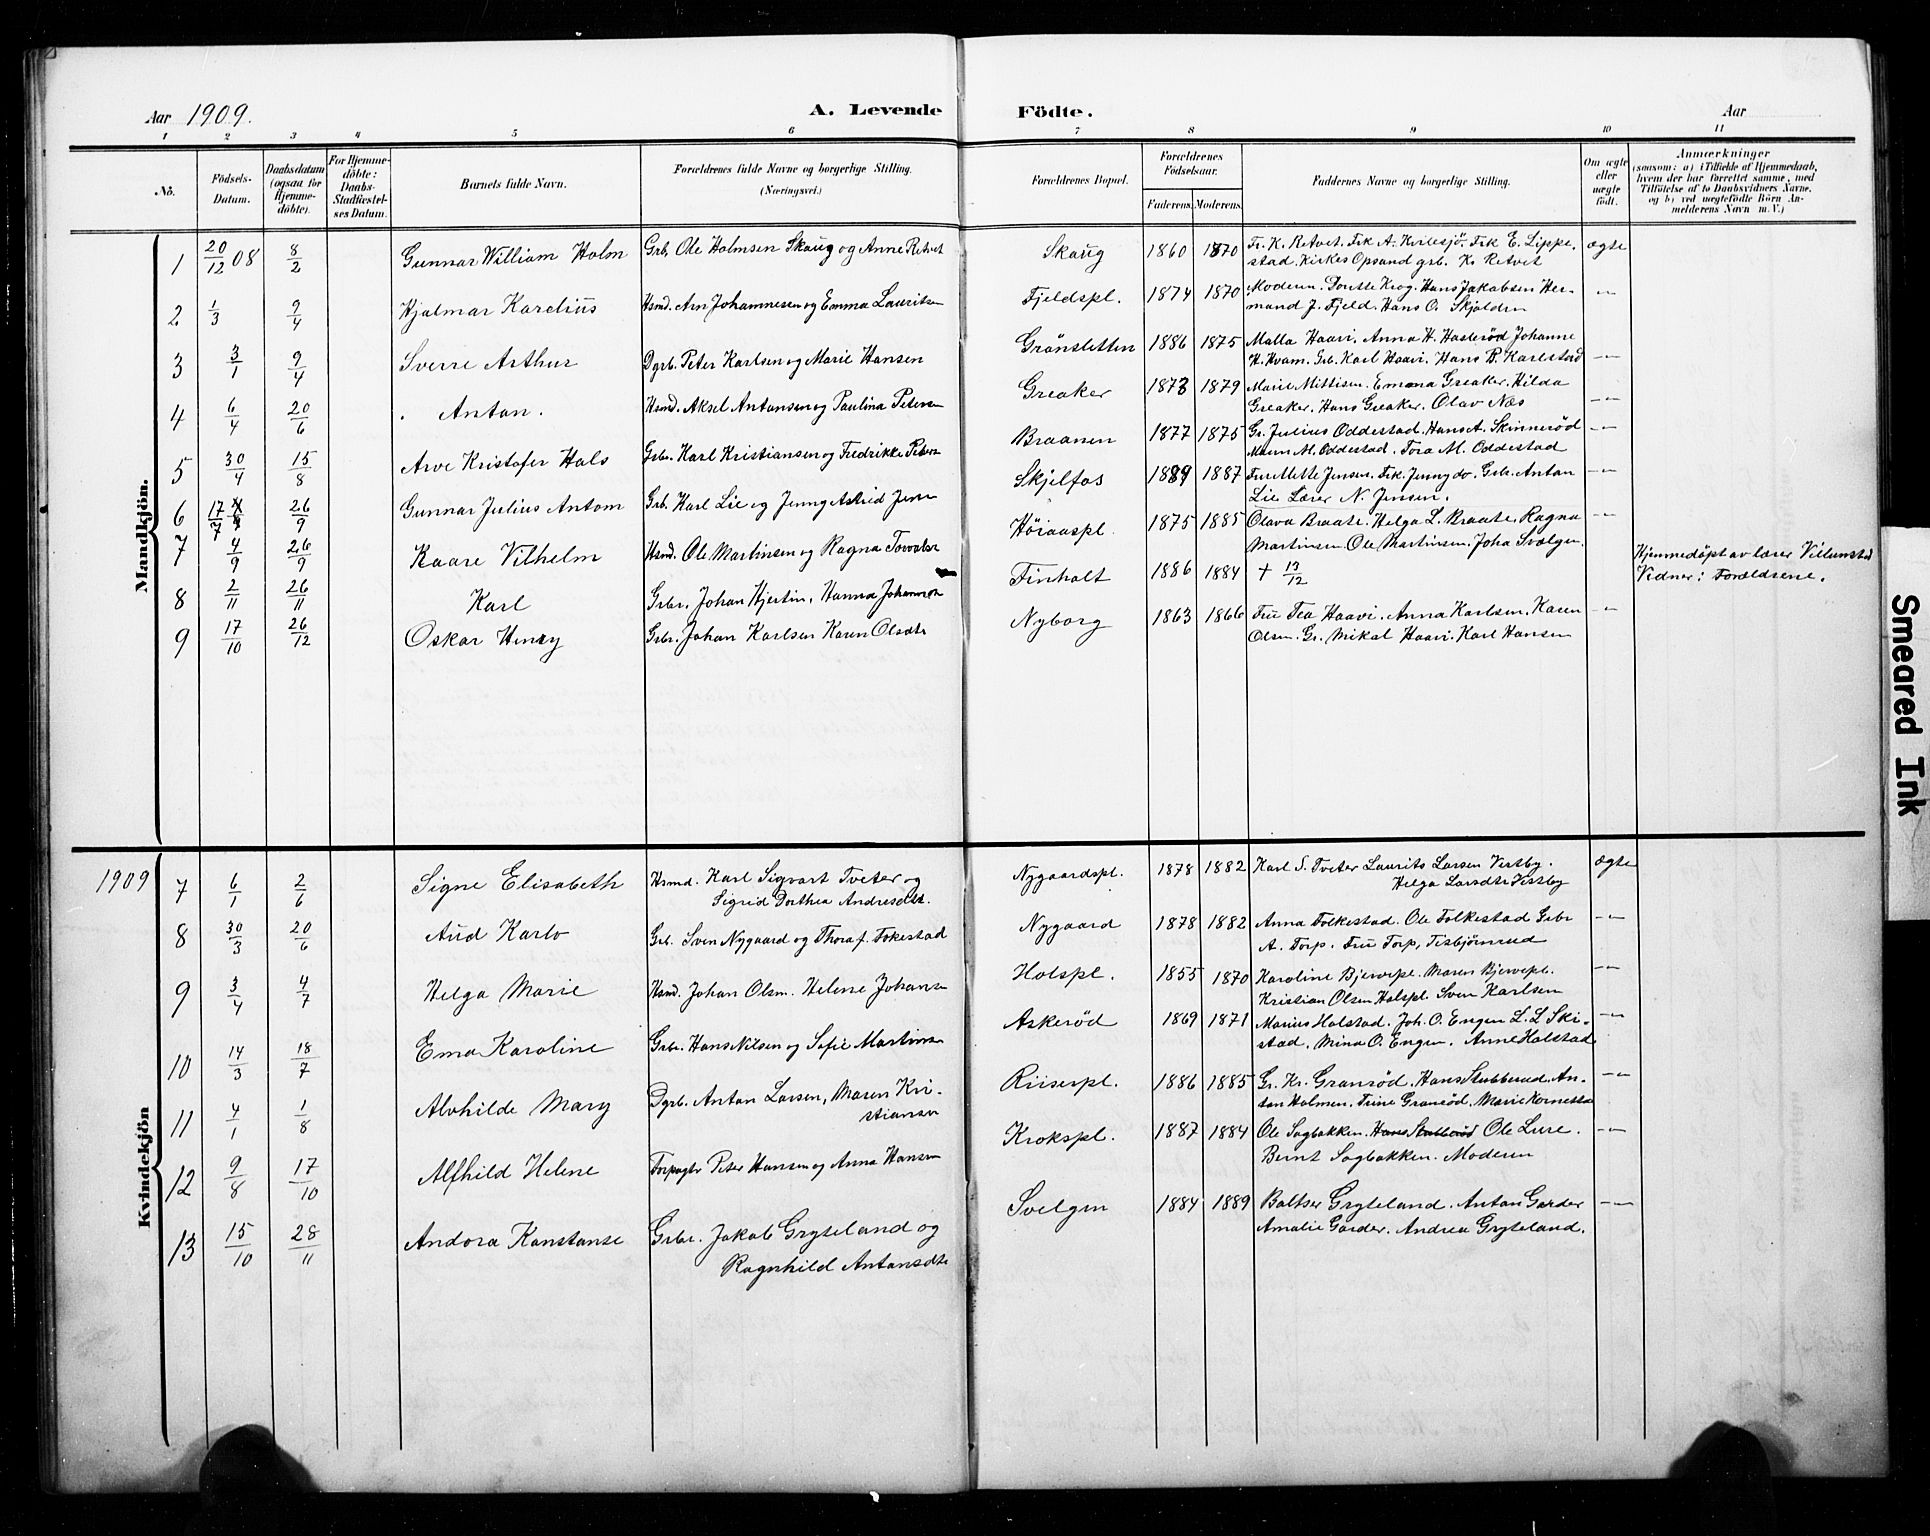 Aar 1909.
A. Levende
Födte.
Aar
1 2 3 4 5 6 7 8 9 10 11
No.
Födsels-Datum.
Daabsdatum (ogsaa for Hjemmedöbte).
For Hjemmedöbte: Daabs-Stadfæstelses Datum.
Barnets fulde Navn.
Forældrenes fulde Navne og borgerlige Stilling. (Næringsvei.)
Forældrenes Bopæl.
Forældrenes Födselsaar.
Faderens. Moderens.
Faddernes Navne og borgerlige Stilling.
Om ægte eller uægte födt.
Anmærkninger
(saasom: a) i Tilfælde af Hjemmedaab, hvem der har forrettet samme, med Tilföielse af to Daabsvidners Navne, og b) ved uægtefödte Börn Anmelderens Navn m. V.)
Mandkjön.
1 20/12 08 8/2 Gunnar William Holm Grb. Ole Holmsen Skaug og Anne Retvet Skaug 1860 1870 Fr. K. Retvet. Frk A. Kvilesjö. Frk E. Lippe-
stad. Kirkes Opsand grb. Ks Retvet ægte
2 1/3 9/4 Hjalmar Karelius Hsmd. Arn Johannesen og Emma Lauritsen Fjeldspl. 1874 1870 Modern. Dorthe Krog. Hans Jakobsen Her-
mand J. Fjeld. Hans O. Skjolden —"—
3 3/1 9/4 Sverre Arthur Dgrb. Peter Karlsen og Marie Hansen Grönsletten 1886 1875 Malla Haavi. Anna H. Haslerød Johanne
H. Kvam. Grb. Karl Haavi. Hans B. Karlstad —"—
4 6/4 20/6 Anton. Hsmd. Aksel Antonsen og Paulina Petersen Greaker 1873 1879 Marie Mittisen. Emma Greaker. Hilda
Greaker. Hans Greaker. Olav Næs —"—
5 30/4 15/8 Arve Kristofer Hals Grbr. Karl Kristiansen og Fredrikke Petersen Braanen 1877 1875 Gr. Julius Oddestad. Hans A. Skinnerød
Maren M. Oddestad. Tora M. Oddestad —"—
6 17/7 26/9 Gunnar Julius Antom Grb. Karl Lie og Jenny Astrid Jensen Skjelfos 1889 1887 Fru Mette Jensen. Frk. Jenny do. Grb. Anton
Lie Lærer N. Jensen. —"—
7 4/9 26/9 Kaare Vilhelm Hsmd. Ole Martinsen og Ragna Torvalsen Höiaaspl. 1875 1885 Olava Braate. Helga L. Braate. Ragna
Martinsen. Ole Martinsen. Joha Svælgen. —"—
8 2/11 26/11 Karl Grbr. Johan Hjertin, Hanna Johannesen Finholt 1886 1884 + 13/12 Hjemmedöpt av lærer Villumstad
Vidner: Forældrene.
9 17/10 26/12 Oskar Henry Grbr. Johan Karlsen Karen Olsdtr Nyborg 1863 1866 Fru Tea Haavi. Anna Karlsen. Karen
Olsen. Gr. Mikal Haavi. Karl Hansen —"—
Kvindekjön
1909 7 6/1 2/6 Signe Elisabeth Hsmd. Karl Sigvart Tveter og
Sigrid Dorthea Andresdtr. Nygaardspl. 1878 1882 Karl S. Tveter Laurits Larsen Vestby.
Helga Larsdtr Vestby ægte
8 30/3 20/6 Aud Karlo Grb. Sven Nygaard og Thora f. Fokestad Nygaard 1878 1882 Anna Folkestad. Ole Folkestad Grbr
A. Torp. Fru Torp, Tisbjörnrud —"—
9 3/4 4/7 Helga Marie Hsmd. Johan Olsen. Helene Johansen Holspl. 1855 1870 Karoline Bjervepl. Maren Bjervepl.
Kristian Olsen Holspl. Sven Karlsen —"—
10 14/3 18/7 Ema Karoline Grbr. Hans Nilsen og Sofie Martinsen Askerød 1869 1871 Marius Holstad. Joh. O. Engen L. L Ski-
stad. Mina O. Engen. Anne Holstad —"—
11 4/1 1/8 Alvhilde Mary Dgrb. Anton Larsen, Maren Kri-
stiansen Riiserpl. 1886 1885 Gr. Kr. Granrød. Hans Stubberud. An-
ton Holmen. Trine Granrød. Marie Kornesta —"—
12 9/8 17/10 Alfhild Helene Forpagter Peter Hansen og Anna Hansen Krokspl. 1887 1884 Ole Sagbakken. Hans Stubberud Ole Lure.
Bernt Sagbakken. Moderen —"—
13 15/10 28/11 Andora Konstanse Grbr. Jakob Gryteland og
Ragnhild Antonsdtr Svelgen 1884 1889 Baltser Gryteland. Anton Garder
Amalie Garder. Andrea Gryteland. —"—
Smeared Ink